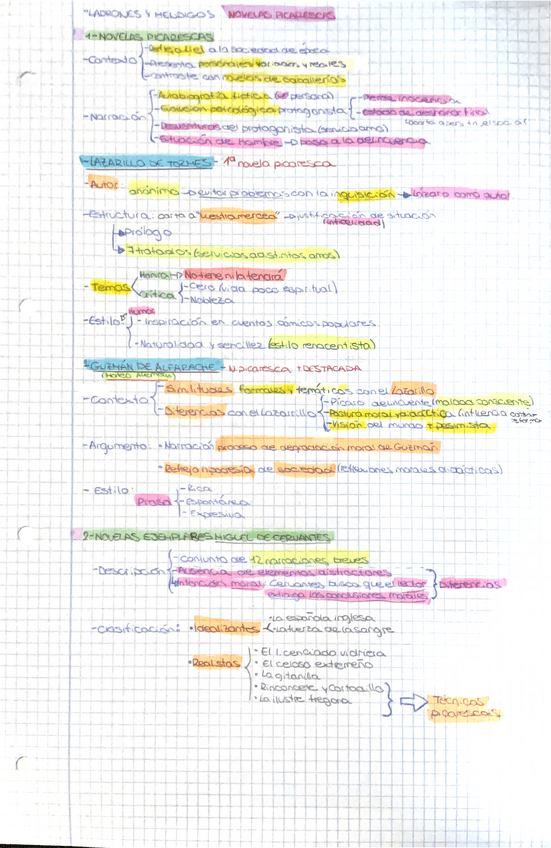 -LADRONES Y MENDIGOS NOVELAS PICARESCAS
1-NOVELAS PICARESCAS
-Contexto
-Refleja fiel a la sociedad de época
-Presenta personajes y reales
-contraste con novelas de caballerías
-Narración
-Autobiografía ficticia (1ª persona)
-Evolución psicológica protagonista
-Pierde inocencia
-estado de deshonor final
-Desventuras del protagonista (servicio amo)
-Situación de hambre → pasa a la delincuencia
-LAZARILLO DE TORMES - 1ª novela picaresca
-Autor: anónimo → evitar problemas con la inquisición → Lázaro como autor
-Estructura: carta a "vuestra merced" → justificación de situación
Prólogo
7 tratados (servicios a distintos amos)
-Temas
Honra → No tiene ni la tendrá
Crítica
-Clero (vida poco espiritual)
-Nobleza
-Estilo:
humor
-Inspiración en cuentos cómicos populares
-Naturalidad y sencillez (estilo renacentista)
-GUZMÁN DE ALFARACHE - N.picaresca + DESTACADA
(Mateo Alemán)
-Contexto
-Similitudes formales y temáticas con el Lazarillo
-Diferencias con el Lazarillo
-Pícaro delincuente (malvado consciente)
-Postura moral y didáctica (influencia
-Visión del mundo + pesimista
-Argumento: •Narración proceso de degradación moral de Guzmán
•Refleja hipocresía de sociedad (reflexiones morales o didácticas)
-Estilo:
Prosa
-Rica
-Espontánea
-Expresiva
2-NOVELAS EJEMPLARES MIGUEL DE CERVANTES
-Descripción
-conjunto de 12 narraciones breves
-Ausencia de elementos distractores
-Intención moral: Cervantes busca que el lector
extraiga las conclusiones morales
Diferencias
-Clasificación: •Idealizantes
-La española inglesa
-La fuerza de la sangre
•Realistas
•El licenciado vidriera
•El celoso extremeño
•La gitanilla
•Rinconete y Cortadillo
•La ilustre fregona
Técnicas
picarescas